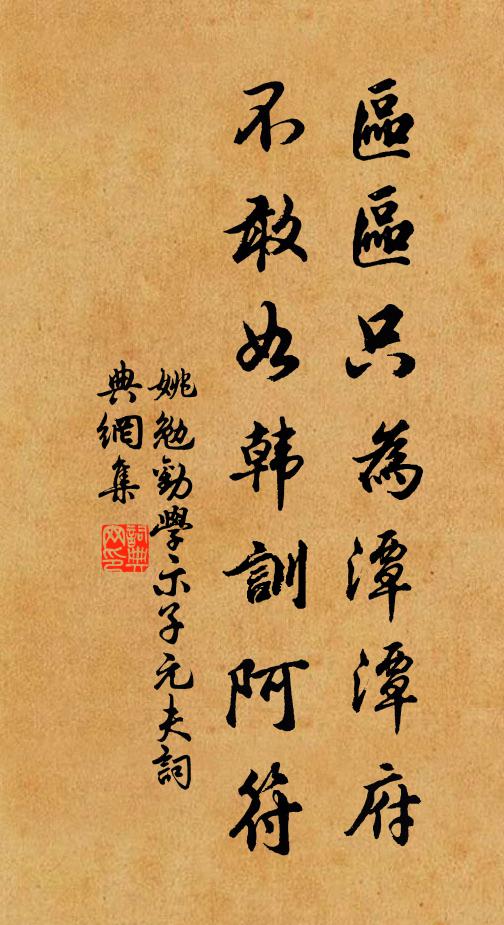 區區只為潭潭府
不敢如韓訓阿符
姚勉勸學示子元夫詞
典網集
詞典网印